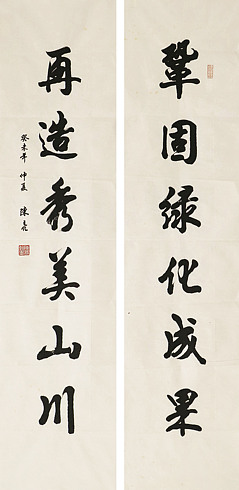 巩固绿化成果
再造秀美山川
癸未年 仲夏 陈亮